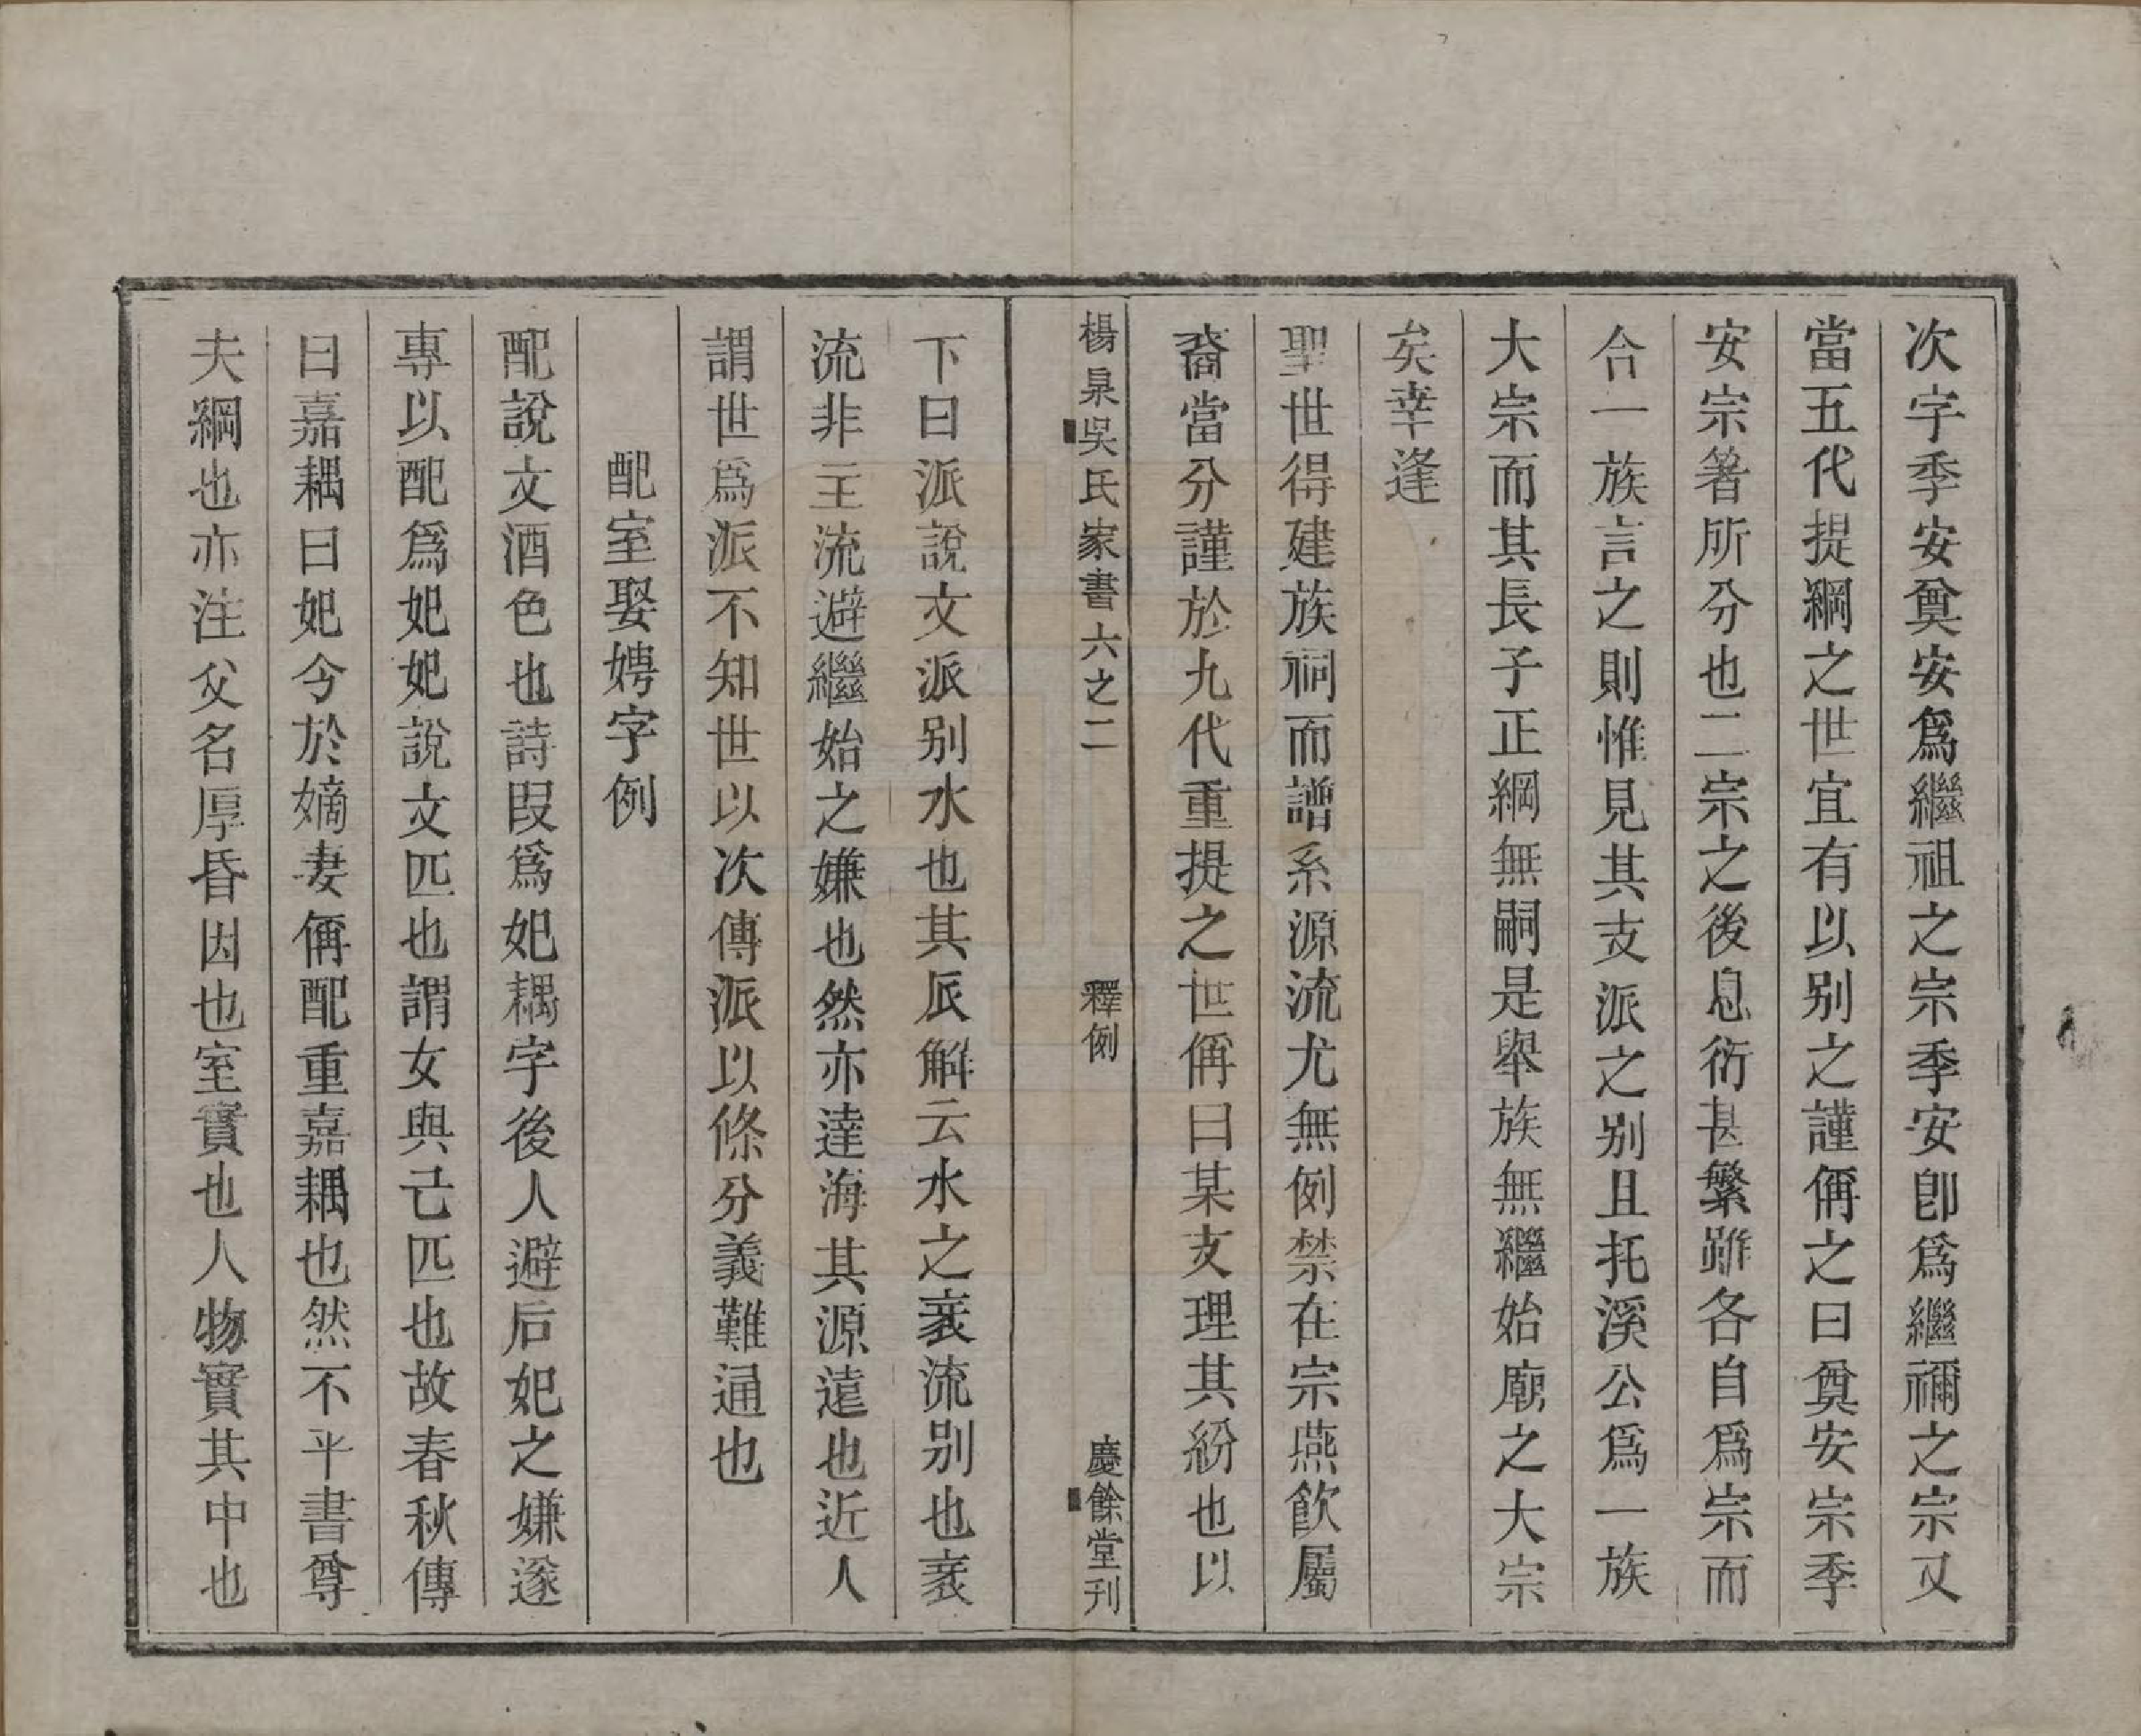 次字季安奠安爲繼祖之宗季安卽爲繼禰之宗又
當五代提綱之世宜有以别之謹偁之曰奠安宗季
安宗箸所分也二宗之後息衍甚繁雖各自爲宗而
合一族言之則惟見其支派之别且托溪公爲一族
大宗而其長子正綱無嗣是舉族無繼始廟之大宗
矣幸逢
聖世得建族祠而譜系源流尤無例禁在宗燕飲屬
裔當分謹於九代重提之世偁曰某支理其紛也以
楊泉吳氏家書六之二
釋例
慶餘堂刊
下曰派說文派别水也其𠂢解云水之衺流别也衺
流非主流避繼始之嫌也然亦達海其源遠也近人
謂世爲派不知世以次傳派以條分義難通也
配室娶娉字例
配說文酒色也詩叚爲妃耦字後人避后妃之嫌遂
專以配爲妃妃說文匹也謂女與己匹也故春秋傳
曰嘉耦曰妃今於嫡妻偁配重嘉耦也然不平書尊
夫綱也亦注父名厚昏因也室實也人物實其中也